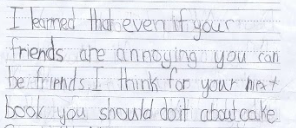 I learned that even if your
friends are annoying you can
be friends. I think for your next
book you should do it about cake.